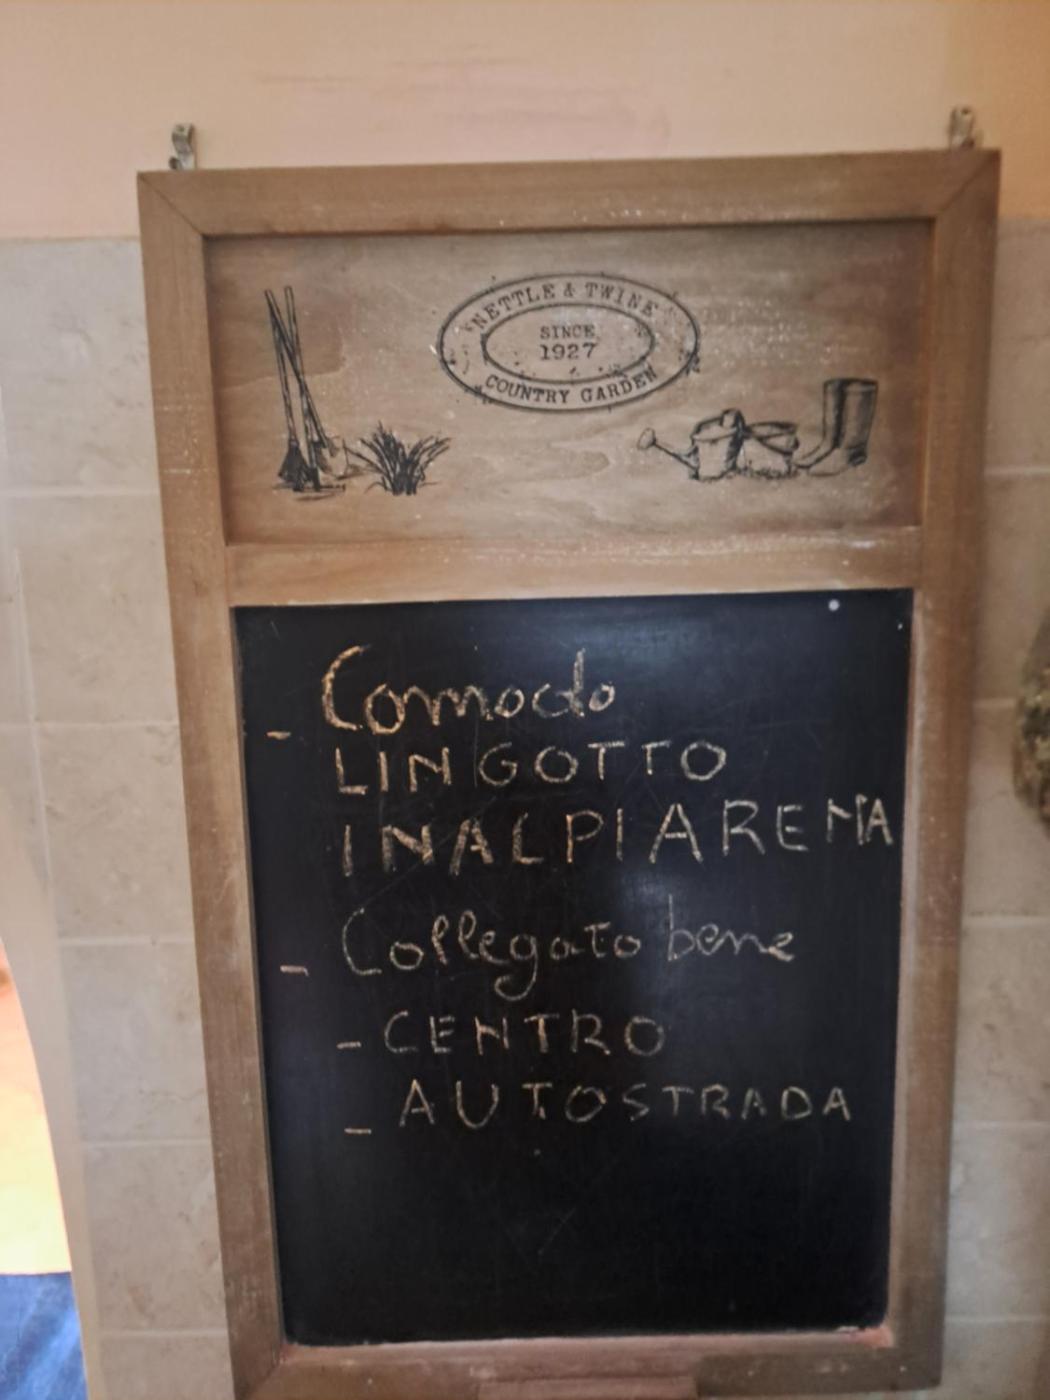 NETTLE & TWINE
SINCE
1927
COUNTRY GARDEN
- Comodo
LINGOTTO
INALPI ARENA
- Collegato bene
- CENTRO
- AUTOSTRADA